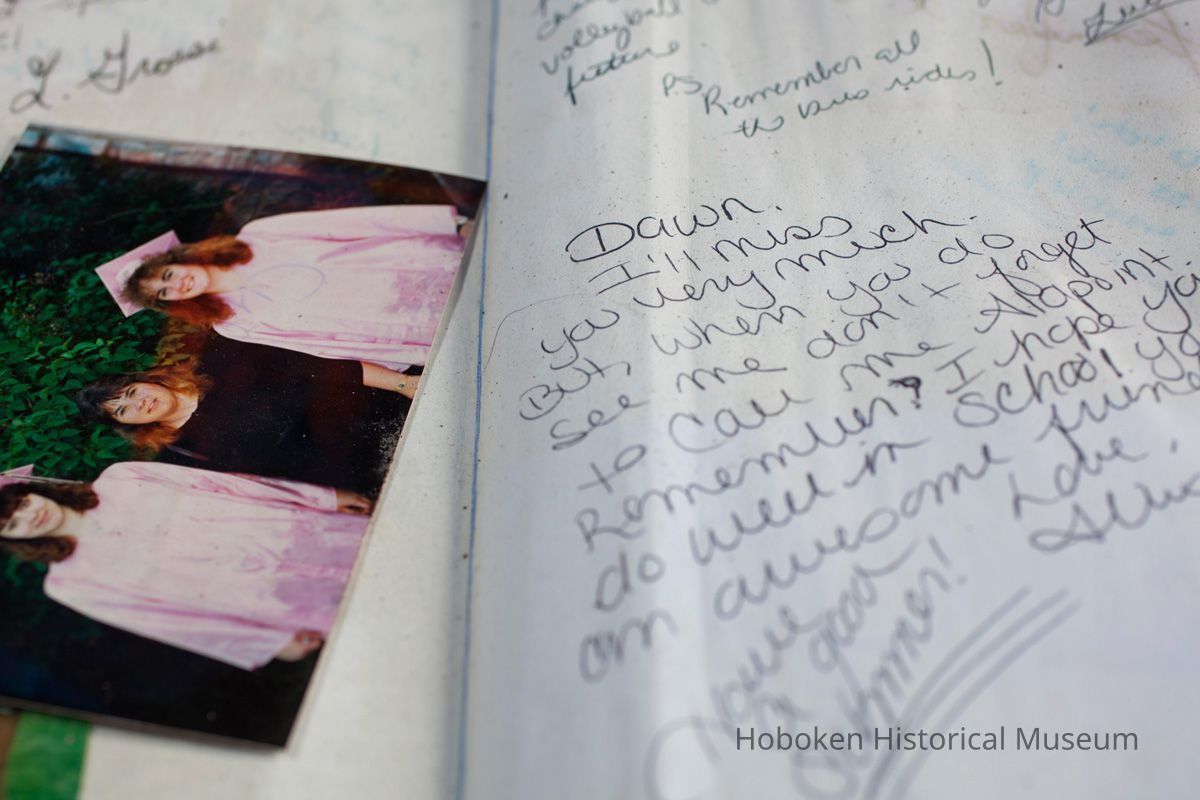 L. Grosse
volleyball
future
PS Remember all
the bus rides!
Dawn.
I'll miss
you very much.
But, when you do
see me don't forget
to call me
Remember? I hope you
do well in school! You
an awesome friend
Love,
Have
a good
Summer!
Hoboken Historical Museum